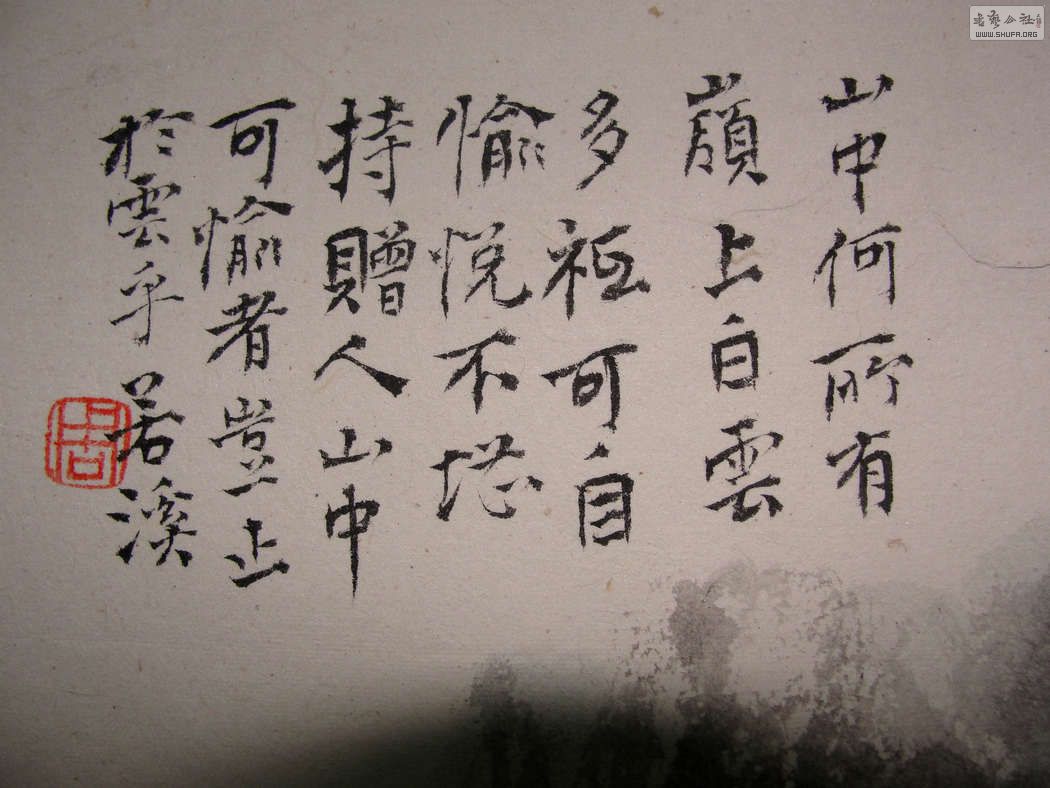 山中何所有
嶺上白雲
多祗可自
愉悅不堪
持贈人山中
可愉者豈止
於雲乎 若溪
書藝公社
WWW.SHUFA.ORG